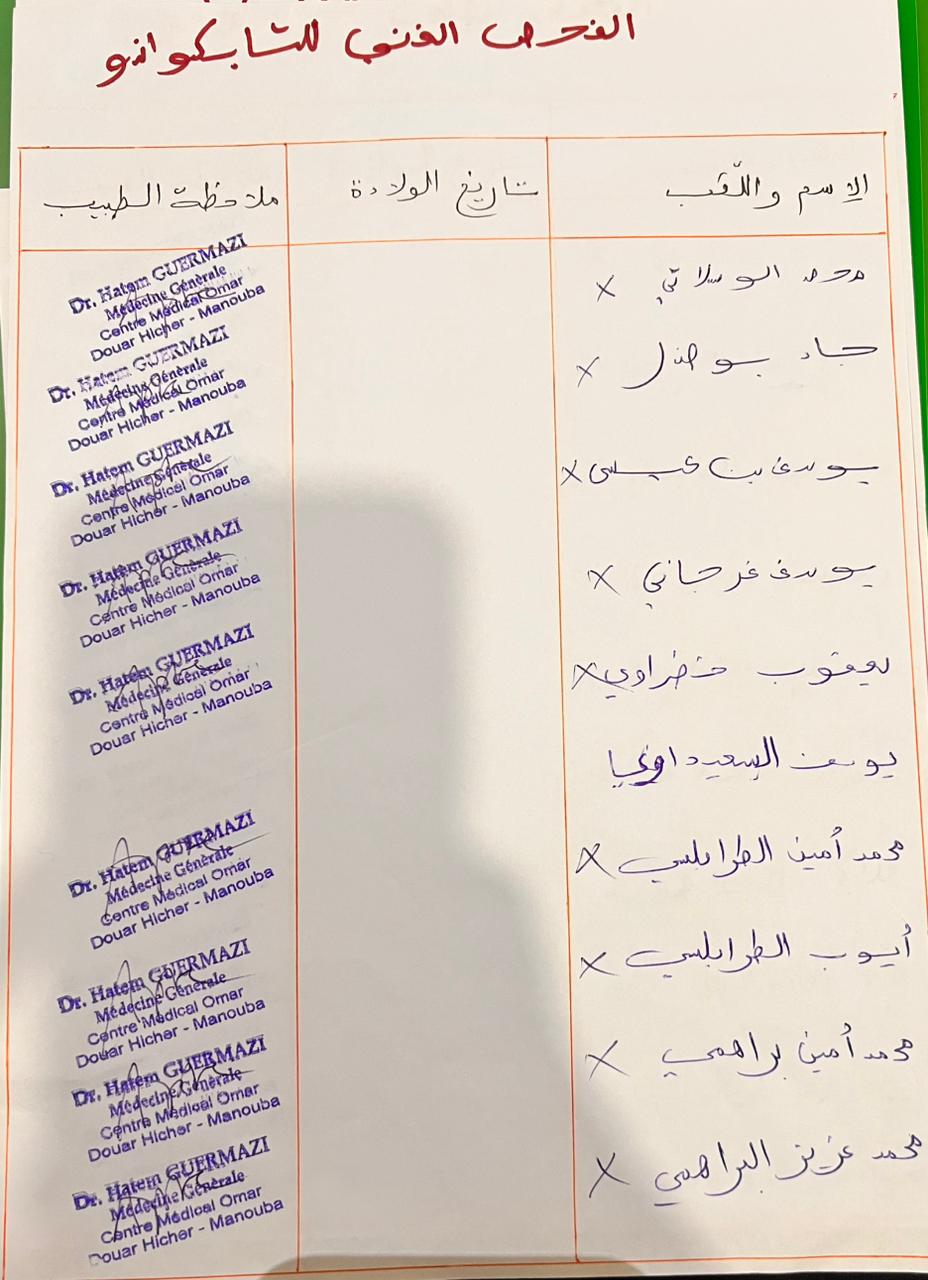 الفحص الفني للتشابكواندو
الاسم واللّقب
تاريخ الولادة
ملاحظة الطبيب
محمد الوسلاتي X
Dr. Hatem GUERMAZI
Médecine Générale
Centre Médical Omar
Douar Hicher - Manouba
جاد بو X
Dr. Hatem GUERMAZI
Médecine Générale
Centre Médical Omar
Douar Hicher - Manouba
يوسف بن عيسى X
Dr. Hatem GUERMAZI
Médecine Générale
Centre Médical Omar
Douar Hicher - Manouba
يوسف فرجاني X
Dr. Hatem GUERMAZI
Médecine Générale
Centre Médical Omar
Douar Hicher - Manouba
يعقوب خضراوي X
Dr. Hatem GUERMAZI
Médecine Générale
Centre Médical Omar
Douar Hicher - Manouba
يوسف السعيداوي
محمد أمين الطرابلسي X
Dr. Hatem GUERMAZI
Médecine Générale
Centre Médical Omar
Douar Hicher - Manouba
أيوب الطرابلسي X
Dr. Hatem GUERMAZI
Médecine Générale
Centre Médical Omar
Douar Hicher - Manouba
محمد أمين براهمي X
Dr. Hatem GUERMAZI
Médecine Générale
Centre Médical Omar
Douar Hicher - Manouba
محمد عزيز البراهمي X
Dr. Hatem GUERMAZI
Médecine Générale
Centre Médical Omar
Douar Hicher - Manouba